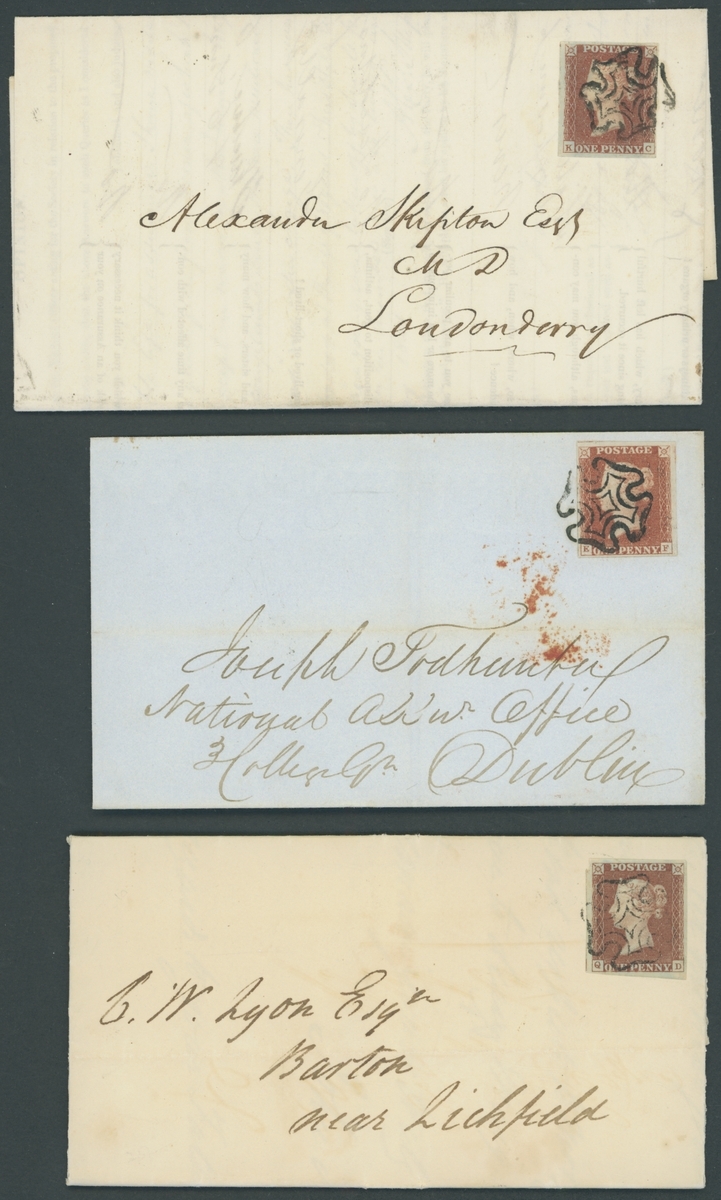 POSTAGE
K ONE PENNY C
Alexander Skipton Esqr
M D
Londonderry
POSTAGE
E ONE PENNY F
Joseph Todhunter
National Office
3 College Gn Dublin
POSTAGE
Q ONE PENNY D
C. W. Lyon Esqre
Barton
near Lichfield